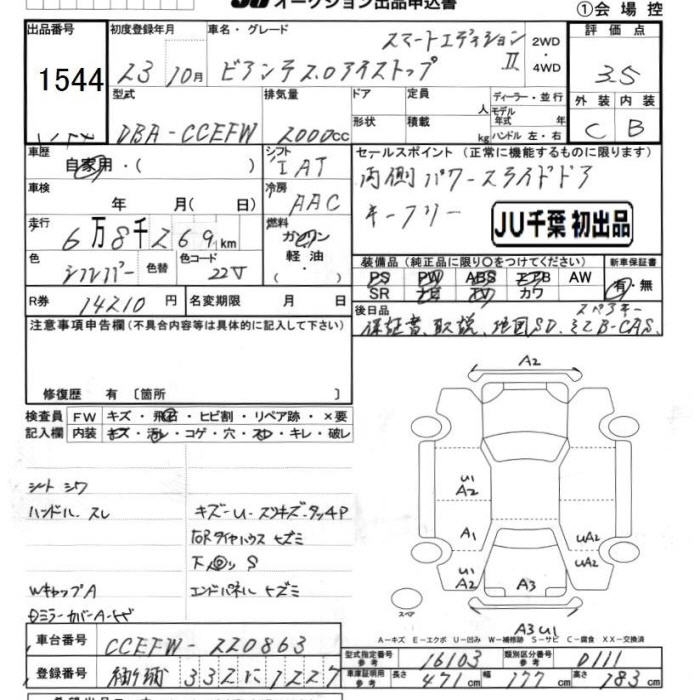 オークション出品申込書
①会場控
出品番号 初度登録年月 車名・グレード 評価点
1544
23 10月 ビアンテ 2.0アイストップ スマートエディションII
2WD・4WD
3.5
型式 排気量 ドア 定員 人 ディーラー・並行 外装 内装
DBA-CCEFW 2000cc 形状 積載 kg モデル年式 年 ハンドル 左・右
C B
車歴 自家用・( ) シフト IAT
セールスポイント (正常に機能するものに限ります)
車検 年 月( 日) 冷房 AAC
両側パワースライドドア
キーフリー
JU千葉 初出品
走行 6万8千269km 燃料 ガソリン 軽油・( )
色 シルバー 色替 色コード 22V
装備品 (純正品に限り○をつけてください) 新車保証書
PS PW ABS エアB AW 有・無
SR ナビ TV カワ
R券 14210円 名変期限 月 日
後日品 スペアキー
保証書、取説、地図SD、ミニB-CAS、
注意事項申告欄(不具合内容等は具体的に記入して下さい)
修復歴 有 〔箇所 〕
検査員記入欄
FW キズ・飛石・ヒビ割・リペア跡・×要
内装 キズ・汚レ・コゲ・穴・スレ・キレ・破レ
シート シワ
ハンドル、スレ
キズーU・スリキズ・タッチP
右Rタイヤハウス キズミ
下廻り S
Wキャップ A
エンドパネル キズミ
Dミラーカバー A・キズ
A2
U1
A2
A1
U1
A2
UA2
UA2
A3
A3 U1
スペア
A－キズ E－エクボ U－凹み W－補修跡 S－サビ C－腐食 XX－交換済
車台番号 CCEFW-220863
型式指定番号 参考 16103 類別区分番号 参考 0111
登録番号 332 に 1227
車庫証明用 参考 長さ 471cm 幅 177cm 高さ 183cm